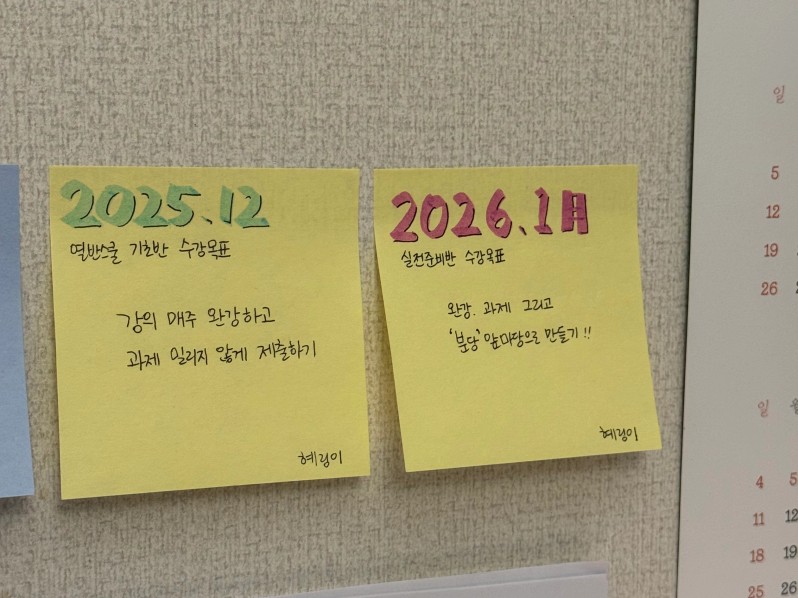 2025.12
열반스쿨 기초반 수강목표
강의 매주 완강하고
과제 밀리지 않게 제출하기
혜령이
2026.1月
실전준비반 수강목표
완강. 과제 그리고
'분당' 앞마당으로 만들기!!
혜령이
일
5
12
19
26
일 월
4 5
11 12
18 19
25 26